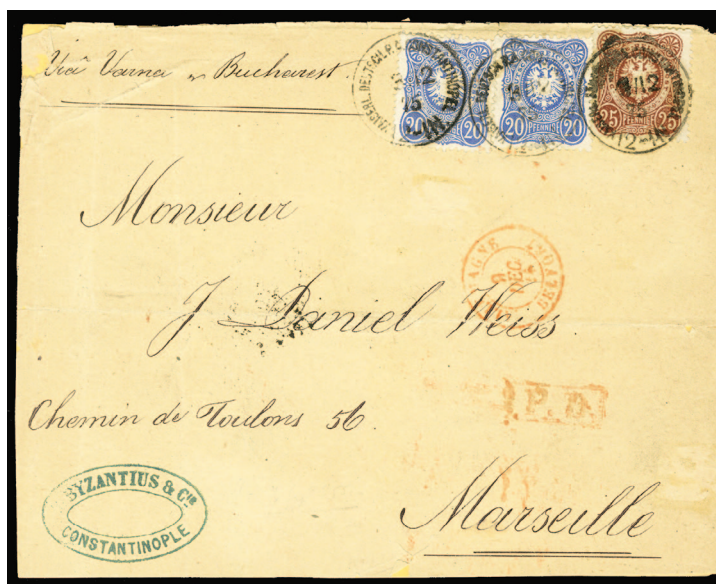 Via Varna Bucharest
20 20
20 PFENNIGE 20
25 PFENNIGE 25
Monsieur
J Daniel Weiss
Chemin de Toulons 56
P.D.
BYZANTIUS & Cie
CONSTANTINOPLE
Marseille